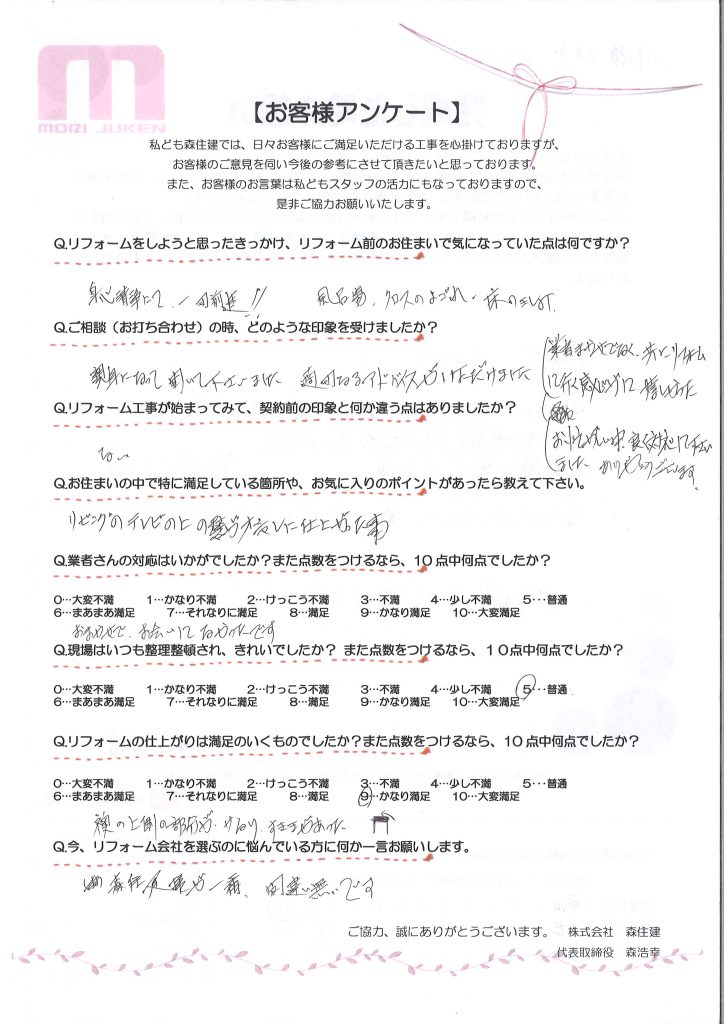 MORI JUKEN
【お客様アンケート】
私ども森住建では、日々お客様にご満足いただける工事を心掛けておりますが、
お客様のご意見を伺い今後の参考にさせて頂きたいと思っております。
また、お客様のお言葉は私どもスタッフの活力にもなっておりますので、
是非ご協力お願いいたします。
Q.リフォームをしようと思ったきっかけ、リフォーム前のお住まいで気になっていた点は何ですか?
風呂場、クロスのよごれ・床の
Q.ご相談(お打ち合わせ)の時、どのような印象を受けましたか?
親身になって聞いて下さいました 適切なるアドバイスもいただけました
業者まかせでなく、共にリフォーム
Q.リフォーム工事が始まってみて、契約前の印象と何か違う点はありましたか?
ない
ました ありがとうございます。
Q.お住まいの中で特に満足している箇所や、お気に入りのポイントがあったら教えて下さい。
リビングのテレビの上の
Q.業者さんの対応はいかがでしたか?また点数をつけるなら、10点中何点でしたか?
0…大変不満 1…かなり不満 2…けっこう不満 3…不満 4…少し不満 5…普通
6…まあまあ満足 7…それなりに満足 8…満足 9…かなり満足 10…大変満足
Q.現場はいつも整理整頓され、きれいでしたか? また点数をつけるなら、10点中何点でしたか?
0…大変不満 1…かなり不満 2…けっこう不満 3…不満 4…少し不満 5…普通
6…まあまあ満足 7…それなりに満足 8…満足 9…かなり満足 10…大変満足
Q.リフォームの仕上がりは満足のいくものでしたか?また点数をつけるなら、10点中何点でしたか?
0…大変不満 1…かなり不満 2…けっこう不満 3…不満 4…少し不満 5…普通
6…まあまあ満足 7…それなりに満足 8…満足 9…かなり満足 10…大変満足
の上側の部分が
Q.今、リフォーム会社を選ぶのに悩んでいる方に何か一言お願いします。
森住建が一番、間違い無いです
ご協力、誠にありがとうございます。 株式会社 森住建
代表取締役 森浩幸